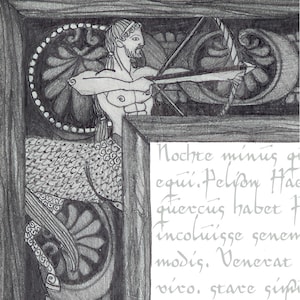 Nochte minus q
equi. Pelion Hae
quercus habet P
incoluisse senem
modis. Venerat
viro. stare simu